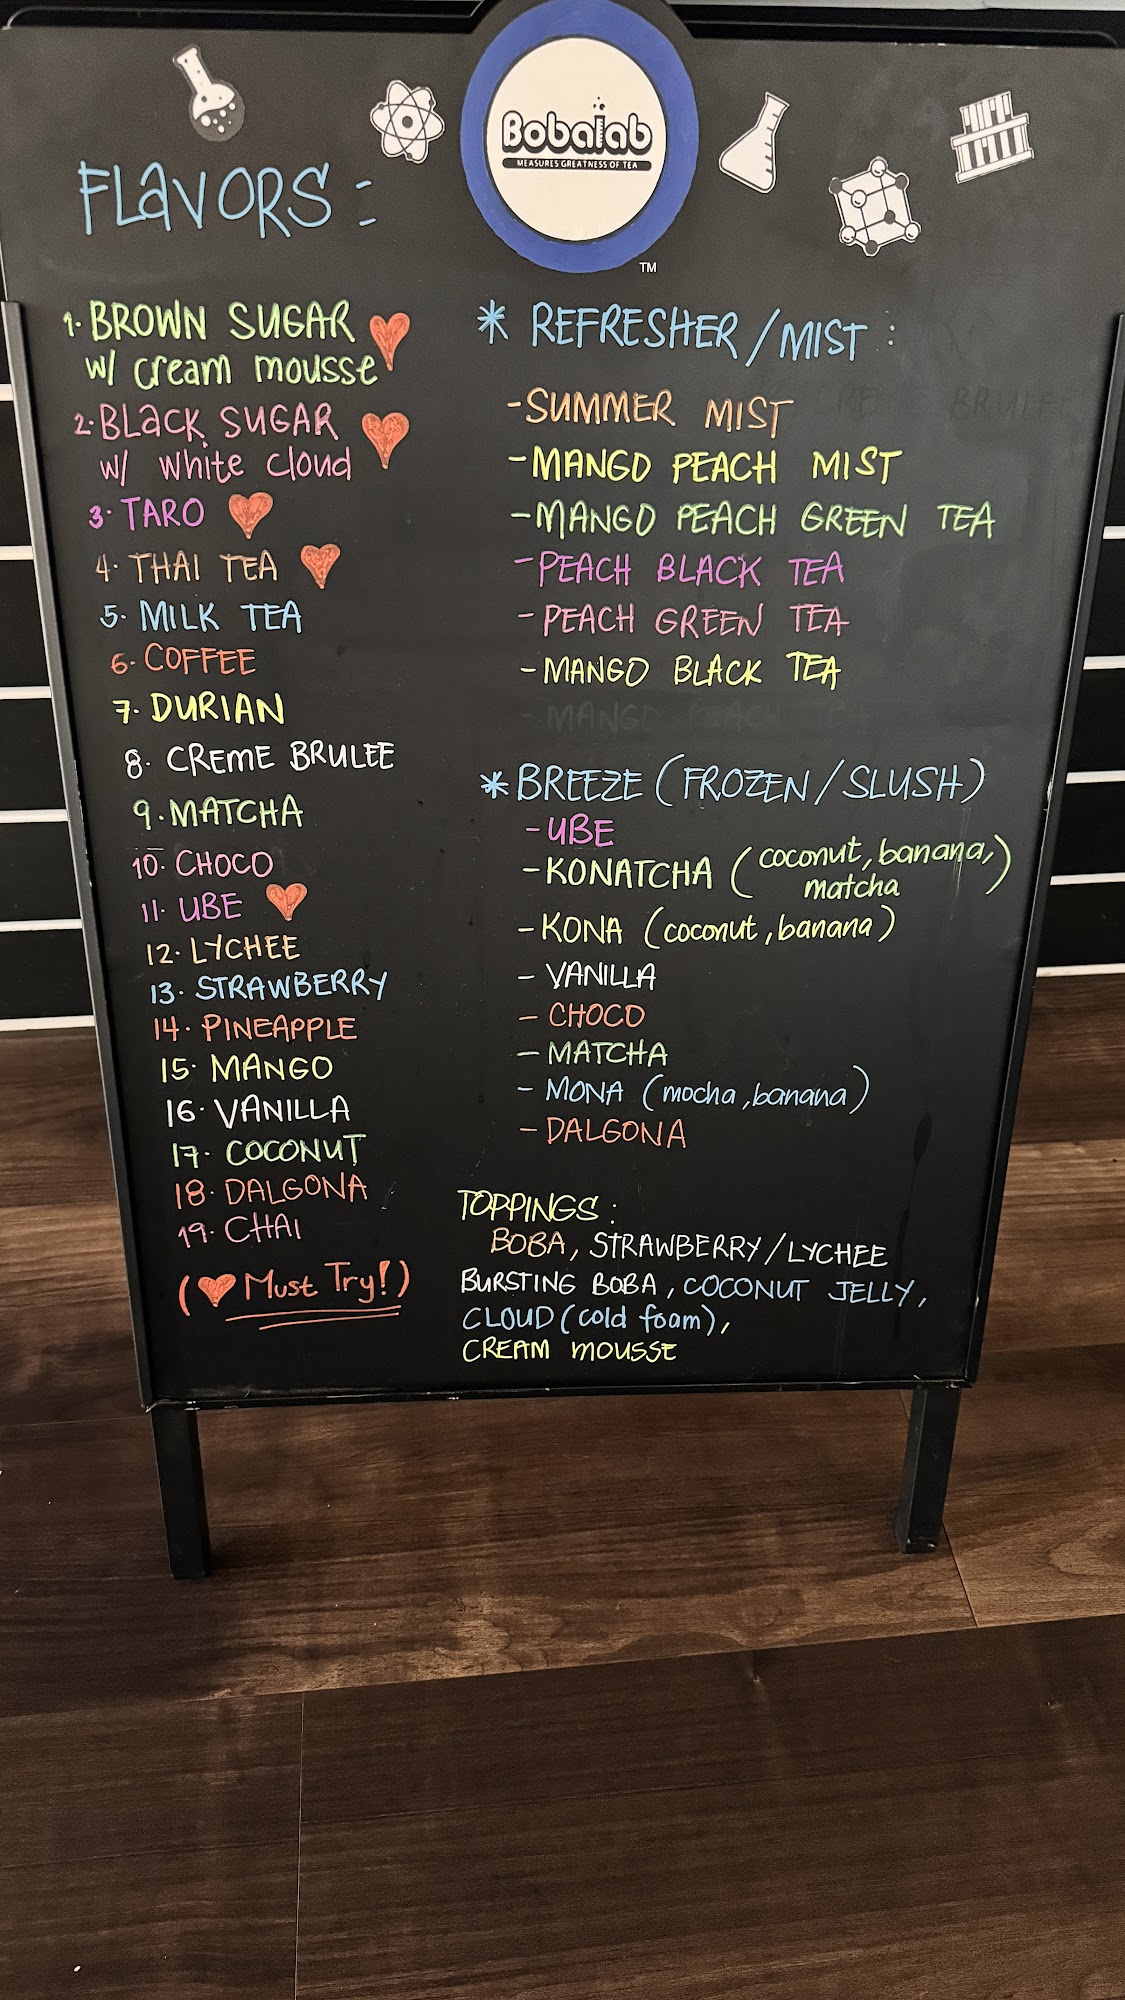 Bobalab
MEASURES GREATNESS OF TEA
TM
FLAVORS :
1. BROWN SUGAR
w/ cream mousse
2. BLACK SUGAR
w/ white cloud
3. TARO
4. THAI TEA
5. MILK TEA
6. COFFEE
7. DURIAN
8. CREME BRULEE
9. MATCHA
10. CHOCO
11. UBE
12. LYCHEE
13. STRAWBERRY
14. PINEAPPLE
15. MANGO
16. VANILLA
17. COCONUT
18. DALGONA
19. CHAI
(♥ Must Try!)
* REFRESHER / MIST :
- SUMMER MIST
- MANGO PEACH MIST
- MANGO PEACH GREEN TEA
- PEACH BLACK TEA
- PEACH GREEN TEA
- MANGO BLACK TEA
- MANGO PEACH TEA
* BREEZE (FROZEN / SLUSH)
- UBE
- KONATCHA (coconut, banana,
matcha)
- KONA (coconut, banana)
- VANILLA
- CHOCO
- MATCHA
- MONA (mocha, banana)
- DALGONA
TOPPINGS :
BOBA, STRAWBERRY/LYCHEE
BURSTING BOBA, COCONUT JELLY,
CLOUD (cold foam),
CREAM MOUSSE